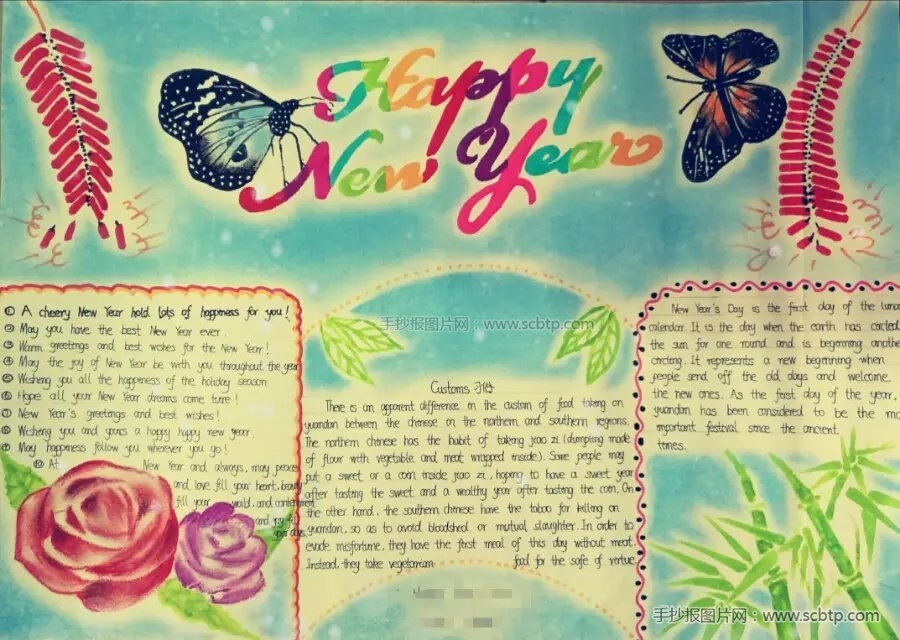 Happy
New Year
① A cheery New Year hold lots of happiness for you!
② May you have the best New Year ever.
③ Warm greetings and best wishes for the New Year!
④ May the joy of New Year be with you throughout the year
⑤ Wesheng you all the happeness of the holiday season
⑥ Hope all your New Year dreams come ture!
⑦ New Year's greetings and best wishes!
⑧ Wesheng you and yours a happy happy new year.
⑨ May happiness follow you wherever you go!
⑩ At New Year and always, may peace
and love fill your heart, beauty
fill your world, and contentment
and joy fill
your days.
手抄报图片网:www.scbtp.com
Customs 习俗
There is an apparent difference in the custom of food takeng on
yuandan between the chinese in the northern and southern regions.
The northern chinese has the habit of takeng jiao zi (dumpling made
of flour with vegetable and meat wrapped inside). Some people may
put a sweet or a coin inside jiao zi, hopeng to have a sweet year
after tasting the sweet and a wealthy year after tasting the coin. On
the other hand, the southern chinese have the taboo for killing on
yuandan, so as to avoid bloodshed or mutual slaughter. In order to
evade misfortune, they have the first meal of this day without meat.
Instead, they take vegetarian food for the safe of vertue.
New Year's Day is the first day of the luna
calendar. It is the day when the earth has circled
the sun for one round and is beginning another
circling. It represents a new beginning when
people send off the old days and welcome
the new ones. As the first day of the year,
yuandan has been considered to be the mo
important festival since the ancient
times.
手抄报图片网:www.scbtp.com